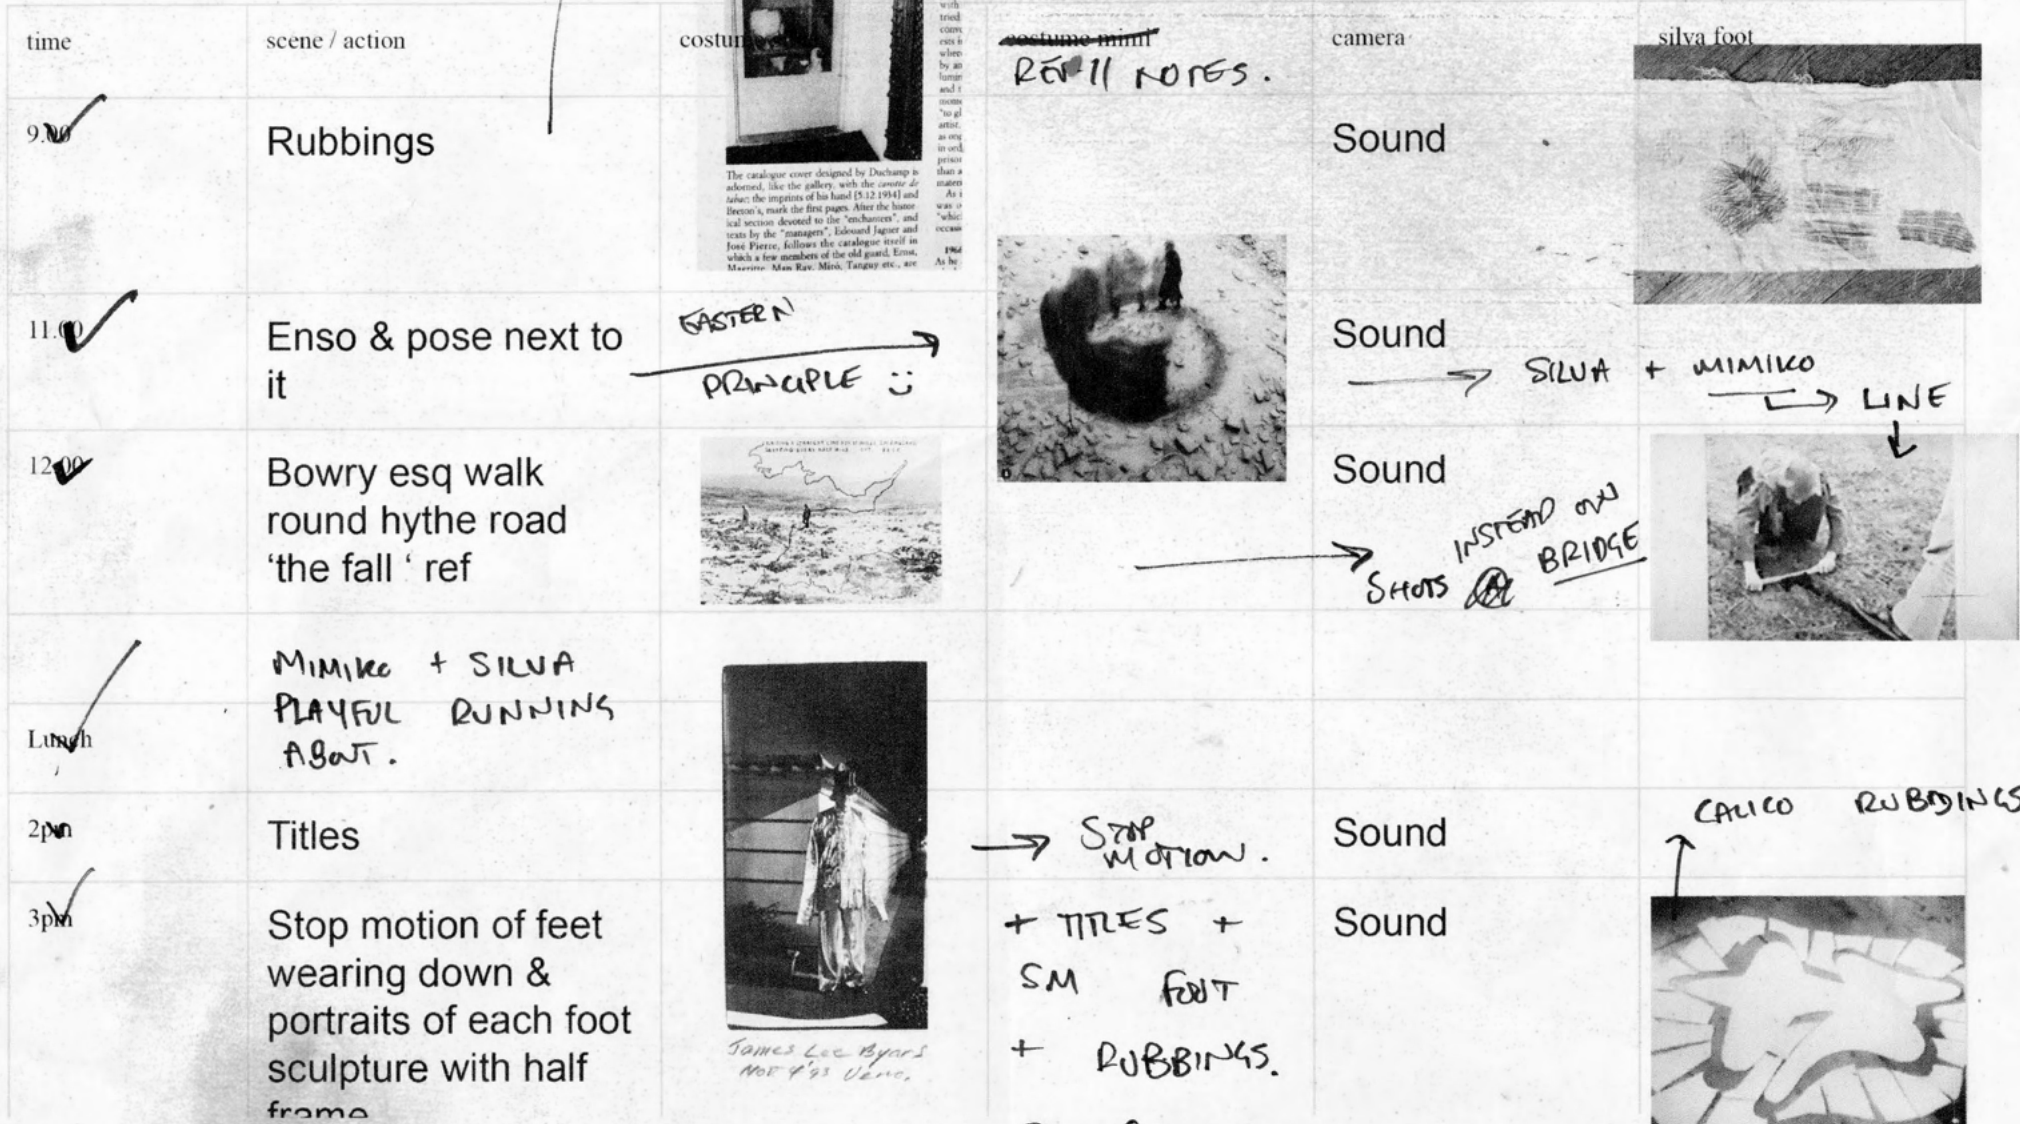 time
scene / action
costume mimi
camera
silva foot
REF // NOTES.
9.00
Rubbings
Sound
The catalogue cover designed by Duchamp is
adorned, like the gallery, with the carotte de
tabac; the imprints of his hand [5.12.1934] and
Breton's, mark the first pages. After the histor-
ical section devoted to the "enchanters", and
texts by the "managers", Edouard Jaguer and
José Pierre, follows the catalogue itself in
which a few members of the old guard, Ernst,
Magritte, Man Ray, Miró, Tanguy etc., are
11.00
Enso & pose next to
it
EASTERN
PRINCIPLE
Sound
SILVA + MIMIKO
LINE
12.00
Bowry esq walk
round hythe road
‘the fall ‘ ref
Sound
INSTEAD ON
SHOTS BRIDGE
MIMIKO + SILVA
PLAYFUL RUNNING
ABOUT.
Lunch
2pm
Titles
STOP
MOTION.
Sound
CALICO RUBBINGS
3pm
Stop motion of feet
wearing down &
portraits of each foot
sculpture with half
frame
+ TITLES +
SM FOOT
+ RUBBINGS.
Sound
James Lee Byars